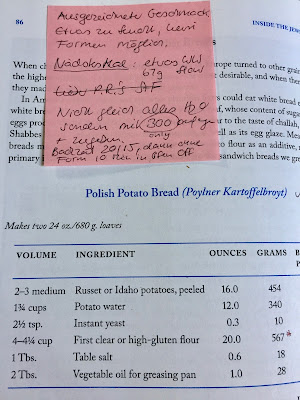 86
INSIDE THE JEW
Ausgezeichneter Geschmack
Etwas zu feucht, kein
Formen möglich.
Nächstes Mal: etwas WW
67g flour
Nicht gleich alles H2O
sondern mit 300 anfangen
only
+ zugeben,
Backzeit 20/15, dann ohne
Form 10 Min in Ofen Off
When ch
urope turned to other grain
the highe
desirable, and when ther
they made
In Am
s could eat white bread e
white bre
d, whose content of sugar
eggs prod
e to the taste of challah,
Shabbes
ell as its egg glaze. Mea
breads m
o flour as an additive, r
primary
sandwich breads we g
Polish Potato Bread (Poylner Kartoffelbroyt)
Makes two 24 oz./680 g. loaves
VOLUME INGREDIENT OUNCES GRAMS
2–3 medium Russet or Idaho potatoes, peeled 16.0 454
1¾ cups Potato water 12.0 340
2½ tsp. Instant yeast 0.3 10
4–4¼ cup First clear or high-gluten flour 20.0 567*
1 Tbs. Table salt 0.6 18
2 Tbs. Vegetable oil for greasing pan 1.0 28